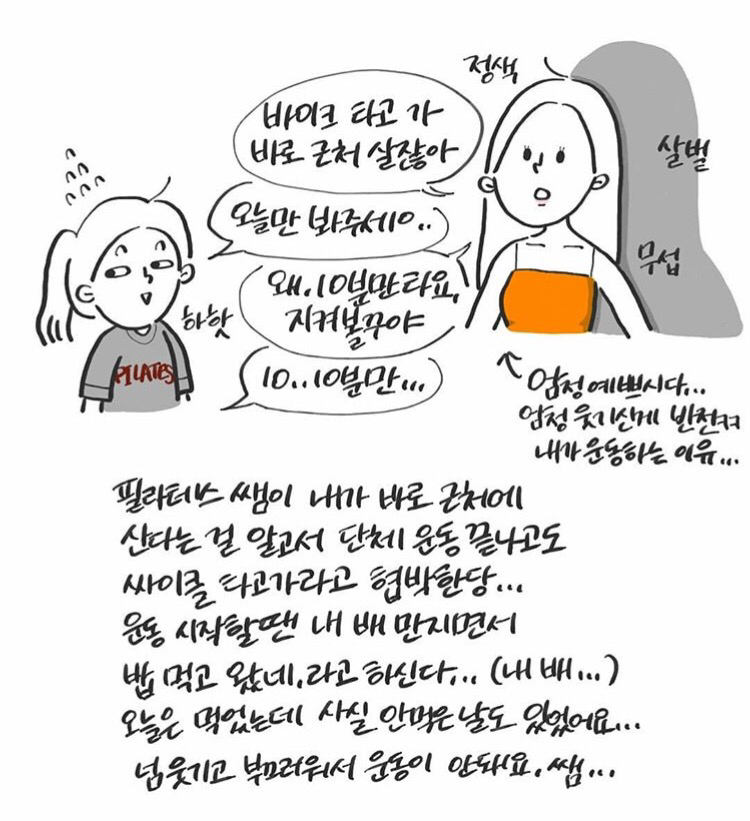 정색
바이크 타고 가
바로 근처 살잖아
살벌
오늘만 봐주세요..
무섭
왜.10분만타요,
지켜볼꾸야
하핫
PILATES
10..10분만...
엄청 예쁘시다...
엄청 웃기신게 반전커
내가 운동하는 이유...
필라테스 쌤이 내가 바로 근처에
산다는 걸 알고서 단체 운동 끝나고도
싸이클 타고가라고 협박한당...
운동 시작할땐 내 배 만지면서
밥 먹고 왔네.라고 하신다... (내 배...)
오늘은 먹었는데 사실 안먹은 날도 있었어요...
넘 웃기고 부끄러워서 운동이 안돼요.쌤...